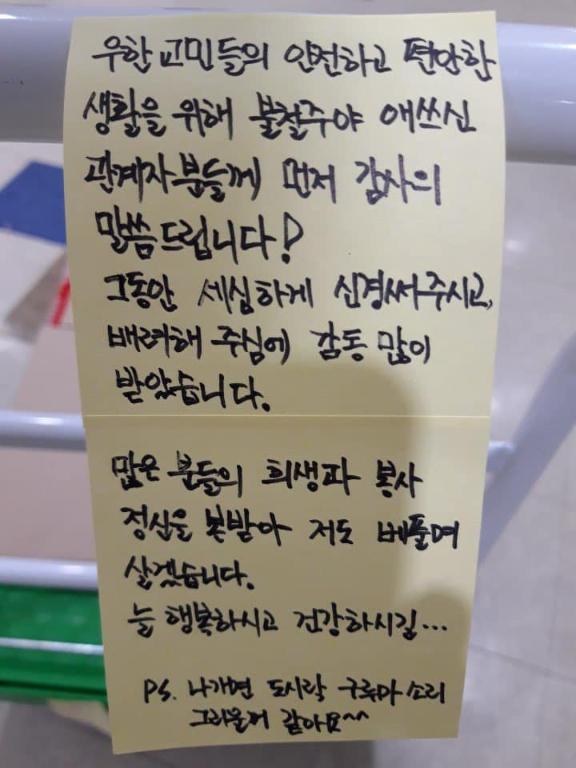 우한 교민들의 안전하고 편안한
생활을 위해 불철주야 애쓰신
관계자분들께 먼저 감사의
말씀드립니다!
그동안 세심하게 신경써주시고,
배려해 주심에 감동 많이
받았습니다.
많은 분들의 희생과 봉사
정신을 본받아 저도 베풀며
살겠습니다.
늘 행복하시고 건강하시길...
PS. 나가면 도시락 구루마 소리
그리울꺼 같아요^^